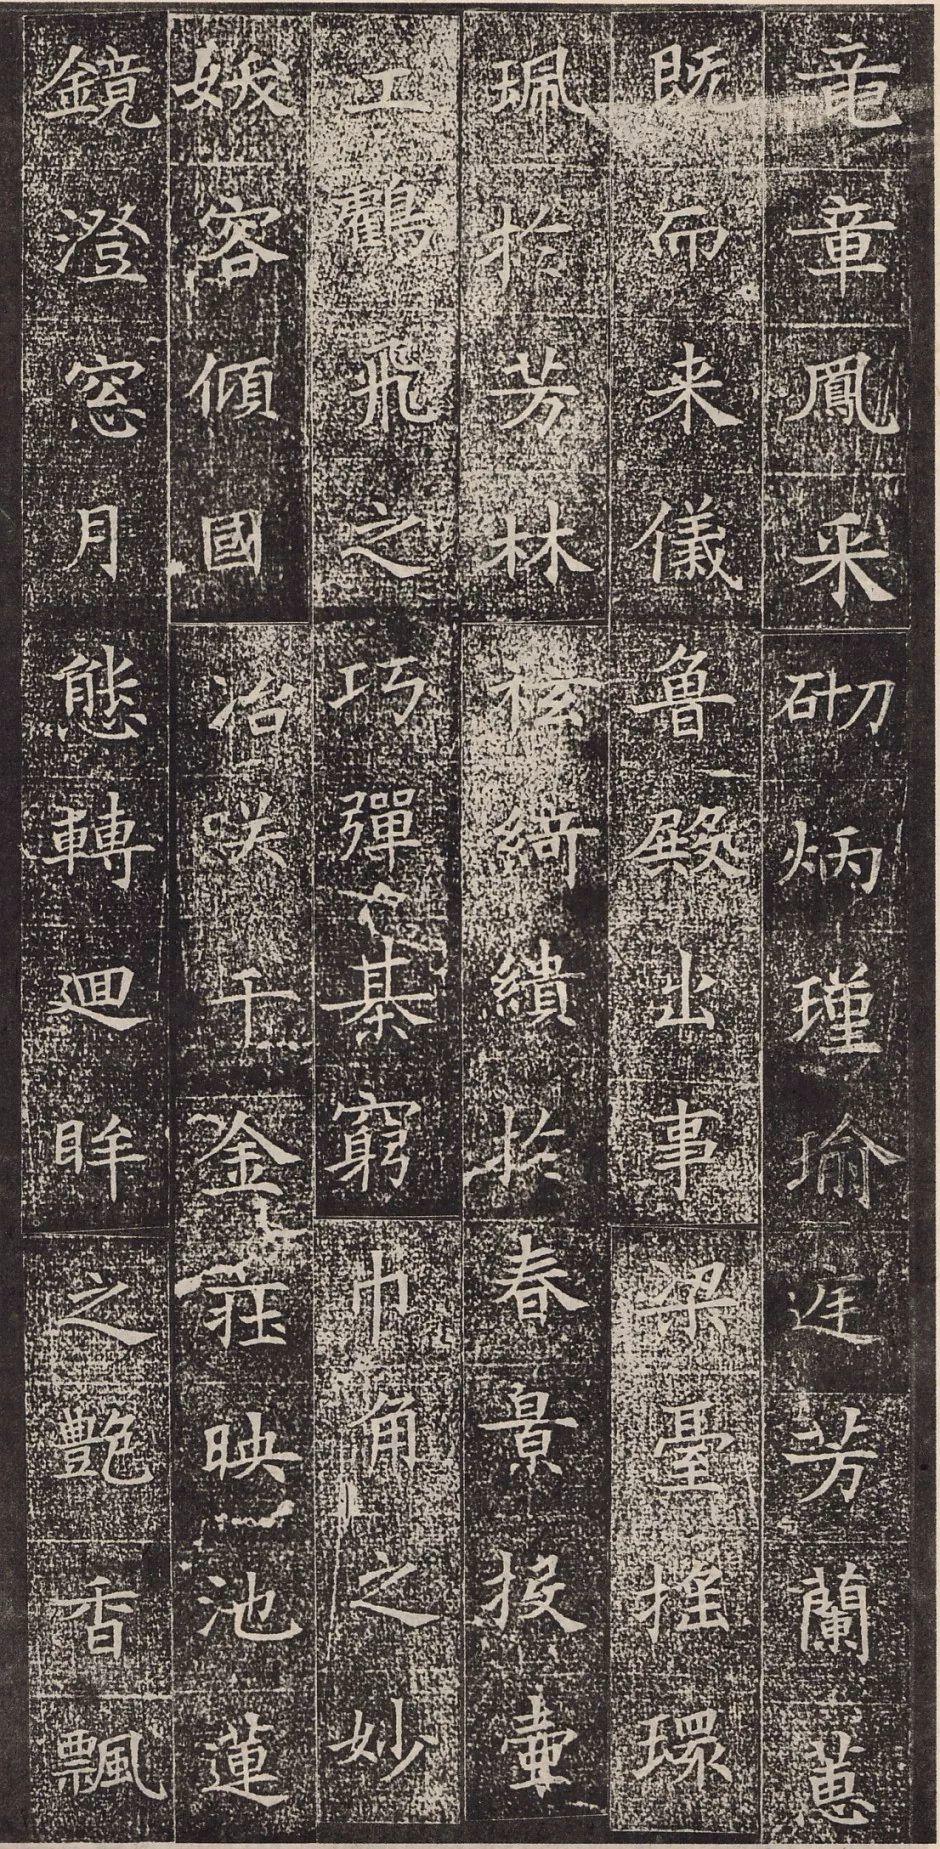 竜章鳳采砌炳瑾瑜庭芳蘭蕙
既而来儀魯殿出事梁臺搖環
珮於芳林袨綺繢於春景投壷
工鸖飛之巧彈棊窮巾角之妙
妖容傾國冶咲千金莊映池蓮
鏡澄窓月態轉迴眸之艷香飄